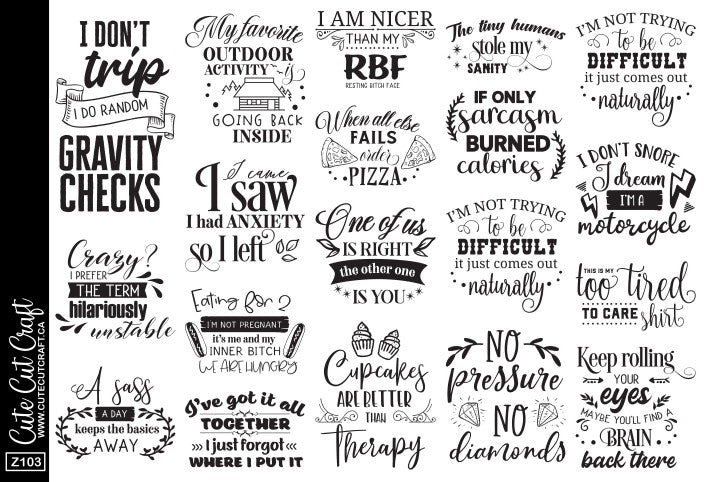 I DON'T
trip
I DO RANDOM
GRAVITY
CHECKS
Crazy?
I PREFER
THE TERM
hilariously
unstable
A sass
A DAY
keeps the basics
AWAY
My favorite
OUTDOOR
ACTIVITY is
GOING BACK
INSIDE
I came
I saw
I had ANXIETY
so I left
Eating for 2
I'M NOT PREGNANT
it's me and my
INNER BITCH
WE ARE HUNGRY
I've got it all
TOGETHER
I just forgot
WHERE I PUT IT
I AM NICER
THAN MY
RBF
RESTING BITCH FACE
When all else
FAILS
order
PIZZA
One of us
IS RIGHT
the other one
IS YOU
Cupcakes
ARE BETTER
THAN
Therapy
The tiny humans
stole my
SANITY
IF ONLY
sarcasm
BURNED
calories
I'M NOT TRYING
to be
DIFFICULT
it just comes out
naturally
NO
pressure
NO
diamonds
I'M NOT TRYING
to be
DIFFICULT
it just comes out
naturally
I DON'T SNORE
I dream
I'M A
motorcycle
THIS IS MY
too tired
TO CARE
shirt
Keep rolling
YOUR
eyes
MAYBE YOU'LL FIND A
BRAIN
back there
Cute Cut Craft
WWW.CUTECUTCRAFT.CA
Z103